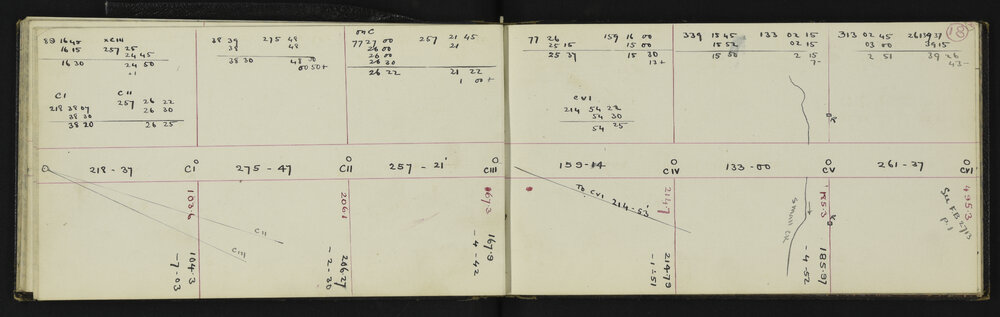 89 16 45 xCIII
16 15 257 25
24 45
16 30 24 50
+1
CI CII
218 38 07 257 26 22
38 30 26 30
38 20 26 25
38 39 275 48
38 48
38 30 48 30
00 50+
on C
77 27 00 257 21 45
26 00 21
26 00
26 30
26 22 21 22
1 00+
77 26 159 16 00
25 15 15 00
25 37 15 30
13+
CVI
214 54 22
54 30
54 25
339 15 45 133 02 15
15 52 02 15
15 50 2 15
7-
313 02 45 261 39 37
03 00 39 15
2 51 39 26
43-
18
218-37 CI
275-47 CII
257-21' CIII
159-14 CIV
133-00 CV
261-37 CVI
CII
CIII
TO CVI 214-53'
Small Ck.
Ck
Ck
103.6
104.3
-7-03
206.1
206.27
-2-20
167.3
167.9
-4-42
214.7
214.79
-1-51
185.3
185.97
-4-52
495.3
See F.B. 2713
p.1